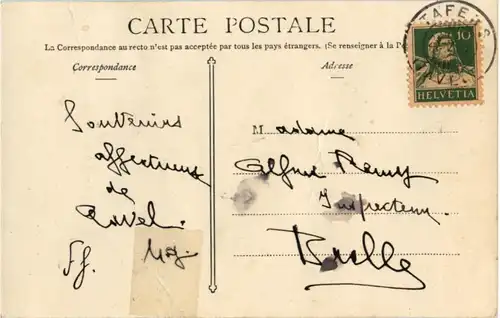 CARTE POSTALE
La Correspondance au recto n'est pas acceptée par tous les pays étrangers. (Se renseigner à la
Correspondance
Adresse
Souvenirs
affectueux
de
Madame
Alfred Remy
Inspecteur
Bulle
10
HELVETIA
TAFERS